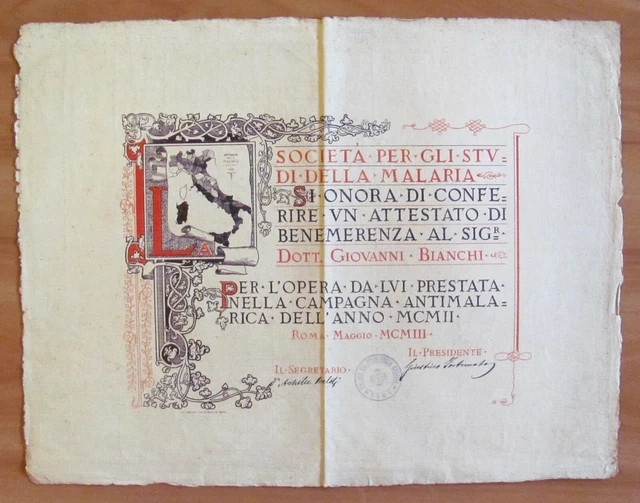 LA
SOCIETÀ · PER · GLI · STV=
DI · DELLA · MALARIA
SI · ONORA · DI · CONFE=
RIRE · VN · ATTESTATO · DI
BENEMERENZA · AL · SIGR.
DOTT. GIOVANNI · BIANCHI ·
PER · L'OPERA · DA · LVI · PRESTATA
NELLA · CAMPAGNA · ANTIMALA=
RICA · DELL'ANNO · MCMII ·
ROMA · MAGGIO · MCMIII ·
IL · PRESIDENTE ·
Giustino Fortunato
IL · SEGRETARIO ·
Achille